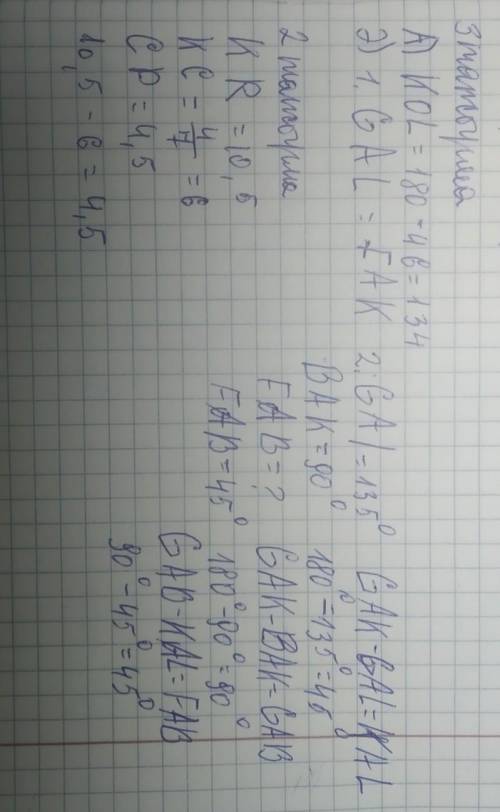 3 тапсырма
А) KOL = 180 - 46 = 134
Ә) 1. GAL = FAK
2. GAL = 135°
BAK = 90°
FAB = ?
FAB = 45°
GAK - GAL = KAL
180° - 135° = 45°
GAK - BAK = GAB
180° - 90° = 90°
GAB - KAL = FAB
90° - 45° = 45°
2 тапсырма
KR = 10,5
KC = = 6
CP = 4,5
10,5 - 6 = 4,5